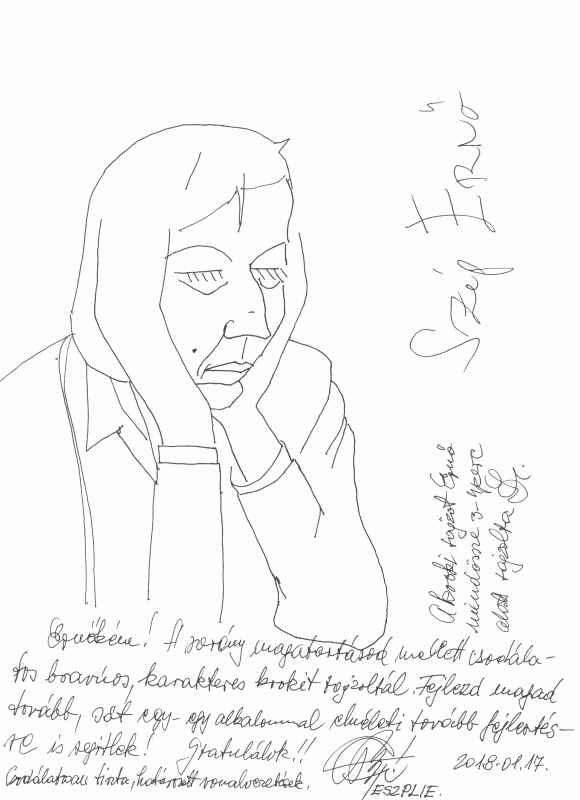 Szép Ernő
A kroki rajzot Ernő
mindössze 3-4 perc
alatt rajzolta
Ernőkém! A sovány magatartásod mellett csodála-
tos bravúros, karakteres krokit rajzoltál. Fejlezd magad
tovább, sőt egy-egy alkalommal elméleti tovább fejlertés-
re is segítlek! Gratulálok!!
Csodálatosan tiszta, határozott vonalvezetések.
ESZPLIE.
2018.01.17.